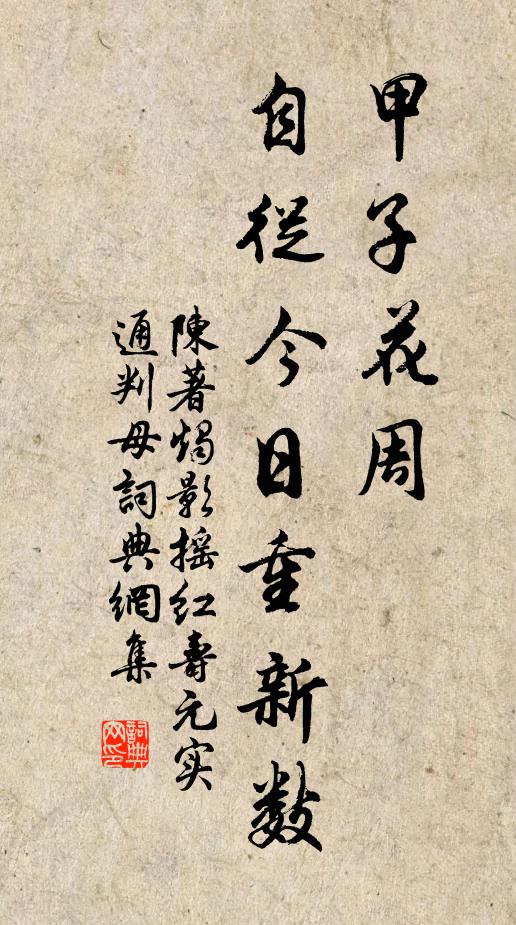 甲子花周
自從今日重新數
陳著燭影摇紅壽元实
通判母詞典網集
詞典
文印